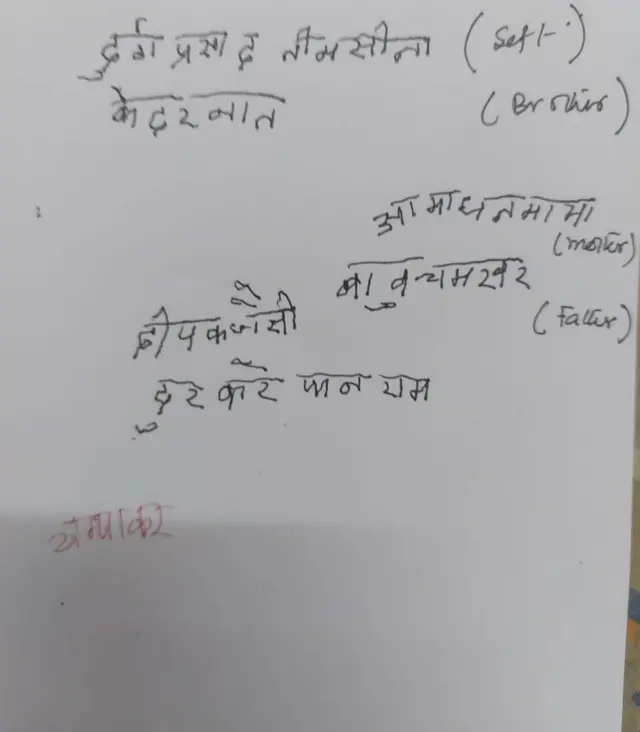 दुर्ग प्रसाद तीमसीना (Self)
केदरनात (Brother)
आमाधनमाया (mother)
बाबुन्यमखर (Father)
दीपकजैसी
दुर करे पानराम